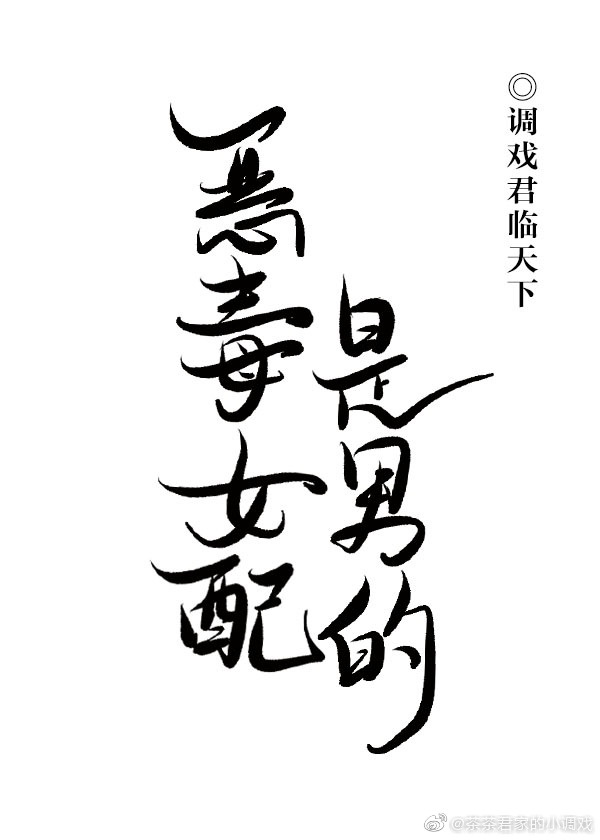 ◎调戏君临天下
恶毒女配
是男的
@茶茶君家的小调戏